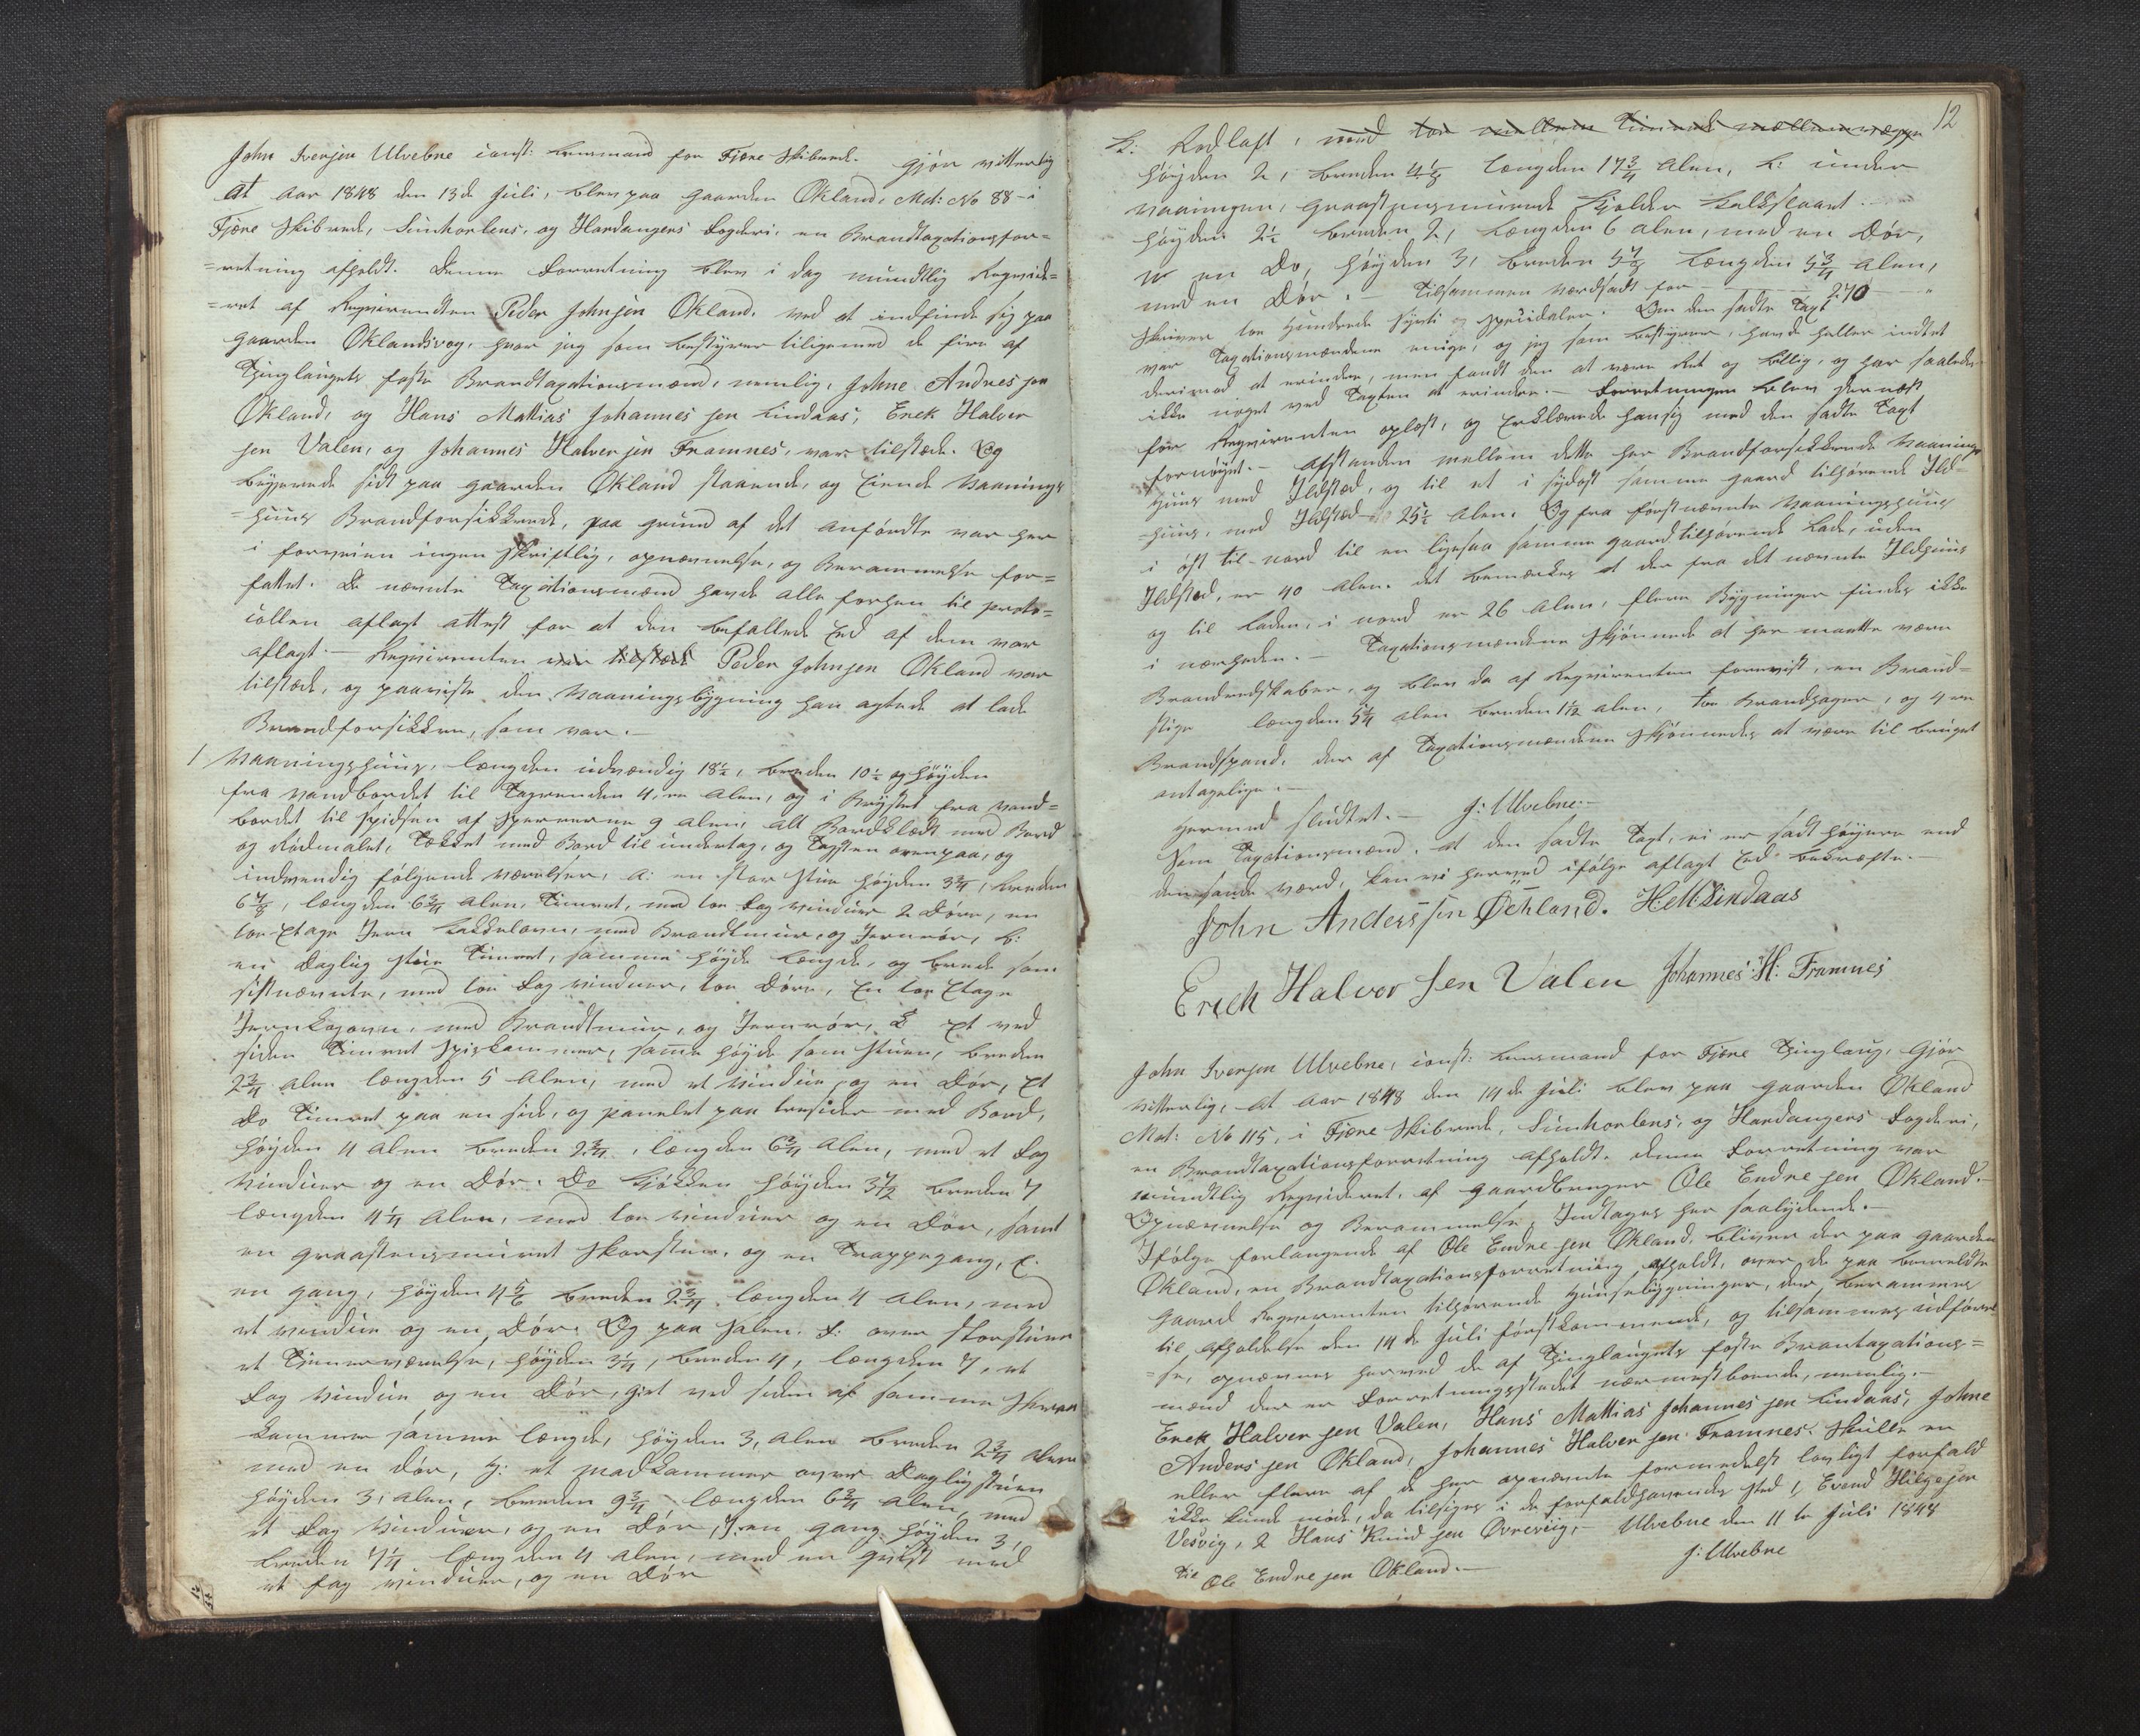 John Iversen Ulvebne const: Lensmand for Fjære Skibrede. Gjør vitterlig
at Aar 1848 den 13de Juli, blev paa Gaarden Økland, Mat: No 88 i
Fjære Skibrede, Sunhorlens, og Hardangers Fogderi, en Brandtaxationsfor=
=retning afholdt. Denne Forretning blev i dag mundtlig Reqvire=
=ret af Reqvirenten Peder Johnsen Økland. ved at indfinde sig paa
Gaarden Øklandsvog, hvor jeg som bestyrer tiligemed de fire af
Thinglaugets faste Brandtaxationsmænd, nemlig, Johne Andres sen
Økland, og Hans Mathias Johannes sen Lindaas, Erek Halver
sen Valen, og Johannes Halversen Framnes, var tilstæde. Og
begjerede sit paa Gaarden Økland staaende, og Eiende Vaanings
=huus Brandforsikkrede, paa grund af det anførdte var her
i forveien ingen skriftlig, opnævnelse, og Berammelse for=
fattet. De nævnte Taxationsmænd havde alle forhen til proto=
collen aflagt attest for at den befallede Eed af dem var
aflagt. — Reqvirenten var tilstæde Peder Johnsen Økland var
tilstæde, og paaviste den Vaaningsbygning han agtede at lade
Brandforsikkre, som var. —
1 Vaaningshuus, længden udvændig 18½, breden 10½ og høyden
fra vandbordet til Tagrenden 4, re Alen, og i Brystet fra vand=
bordet til spidsen af sperrerne 9 alen, alt Bordklædt med Bord
og Rødmalet, Tækket med Bord til undertag, og Tagsten ovenpaa, og
indvendig følgende værelser, a: en stor stue høyden 3¾, breden
6⅞, længden 6¾ alen, Timret, med toe Fag vinduer 2 Døre, en
toe Etage Jern Kakkelovn, med Brandtmuur, og Jernrør, b:
en Daglig stue Timret, samme høyde længde, og brede som
sistnævnte, med toe Fag vinduer, toe Døre, En toe Etage
Jernkogovn, med Brandtmuur, og Jernrør, Et ved
siden Timret Spiskammer, samme høyde som stuen, breden
2¾ alen længden 5 Alen, med et vindue og en Dør, Et
Do Timret paa en side, og panelet paa tresider med Bord,
høyden 4 alen breden 2¾, længden 6¾ Alen, med et Fag
vinduer og en Dør. Do Kjøkken høyden 3½ breden 7
længden 4¼ Alen, med toe vinduer og en Dør, samt
en graastensmuret Skorsten, og en Trappegang, E.
en gang, høyden 4⅚ breden 2¾, længden 4 alen, med
et vindue og en Dør. Og paa salen. F: over storstuen
et Timmerværelse, høyden 3¼, breden 4, længden 7, et
Fag vindue og en Dør, get ved siden af samme
kammer samme længde, høyden 3, alen breden 2¾ alen
med en dør, H: et madkammer over Daglig stuen
høyden 3, alen, breden 9¾, længden 6¾ alen, med
et Fag vinduer, og en Dør, I. en gang høyden 3,
breden 7¼ længden 4 alen, med en qvist med
et fag vinduer, og en Dør
12
K: Rodloft, med toe mellem Timret mellemvægge
høyden 2, breden 4⅛ længden 17¾ Alen, L: under
vaaningen, graastensmurede Kjelder kalkslaaet. —
høyden 2½ breden 2, længden 6 alen, med en Dør,
en Do, høyden 3, breden 5⅞ længden 5¾ Alen,
med en Dør. — Tilsammen værdsadt for — 270
skriver toe Hundrede Sytti og speciedaler. Om den sadte Taxt
var Taxationsmændene enige, og jeg som bestyrer, havde heller indtet
derimod at erindre, men fandt den at være Ret og billig, og har saaledes
ikke noget ved Taxten at erindre. — Forretningen blev dernæst
for Reqvirenten oplæst, og Erklærede han sig med den sadte Taxt
fornøyet. — Afstanden mellem dette her Brandforsikkrede Vaanings
Huus med Ildsted, og til et i sydost samme gaard tilhørende Ild=
=huus, med Ildsted 25½ alen. Og fra førstnævnte Vaaningshuus
i øst til nord til en ligesaa samme gaard tilhørende Lade, uden
Ildsted, er 40 alen. det bemærkes at der fra det nævnte Ildhuus
og til Laden, i nord er 26 Alen, flere Bygninger findes ikke
i nærheden. — Taxationsmændene skjønnede at her maatte være
Brandredskaber, og blev da af Reqvirenten foreviist, en Brand=
stige længden 5¼ alen breden 1½ alen, toe Brandhager, og 4 re
Brandspand. der af Taxationsmændene skjønnedes at være til bruget
antagelige. —
Hermed sluttet. — J: Ulvebne. —
Som Taxationsmænd, at den sadte Taxt, ei er sadt høyere end
den sande værd, kan vi herved ifølge aflagt Eed bekræfte. —
John Anderssen Øchland. H M Lindaas
Erich Halver sen Valen Johannes: H: Framnes
John Iversen Ulvebne, const: Lensmand for Fjære Thinglaug, Gjør
vitterlig, at Aar 1848 den 14de Juli blev paa Gaarden Økland
Mat: No 115, i Fjære Skibrede, Sunhorlens, og Hardangers Fogderi,
en Brandtaxationsforretning afholdt. denne Forretning var
mundtlig Reqvireret, af Gaardbruger Ole Endre sen Økland. —
Opnævnelse og Berammelse, Indtages her saalydende. —
Ifølge forlangende af Ole Endre sen Økland, bliver der paa Gaarden
Økland, en Brandtaxationsforretning afholdt, over de paa bemeldte
Gaard Reqvirenten tilhørende Huusebygninger, der berammes
til afholdelse den 14de Juli førstkommende, og tilsammes udførel
=se, opnævnes herved de af Thinglaugets faste Brantaxations=
mænd der er Forretningsstedet nærmestboende, nemlig. —
Erek Halver sen Valen, Hans Mathias Johannes sen Lindaas, Johne
Anders sen Økland, Johannes Halver sen Framnes. Skulle en
eller flere af de her opnævnte formedelst lovligt forfald
ikke kunde møde, da tilsiges i de forfaldhavendes sted 1, Evend Helgesen
Vesvig, 2 Hans Knud sen Øvreviig, — Ulvebne den 11te Juli 1848
J: Ulvebne
Til Ole Endre sen Økland. —